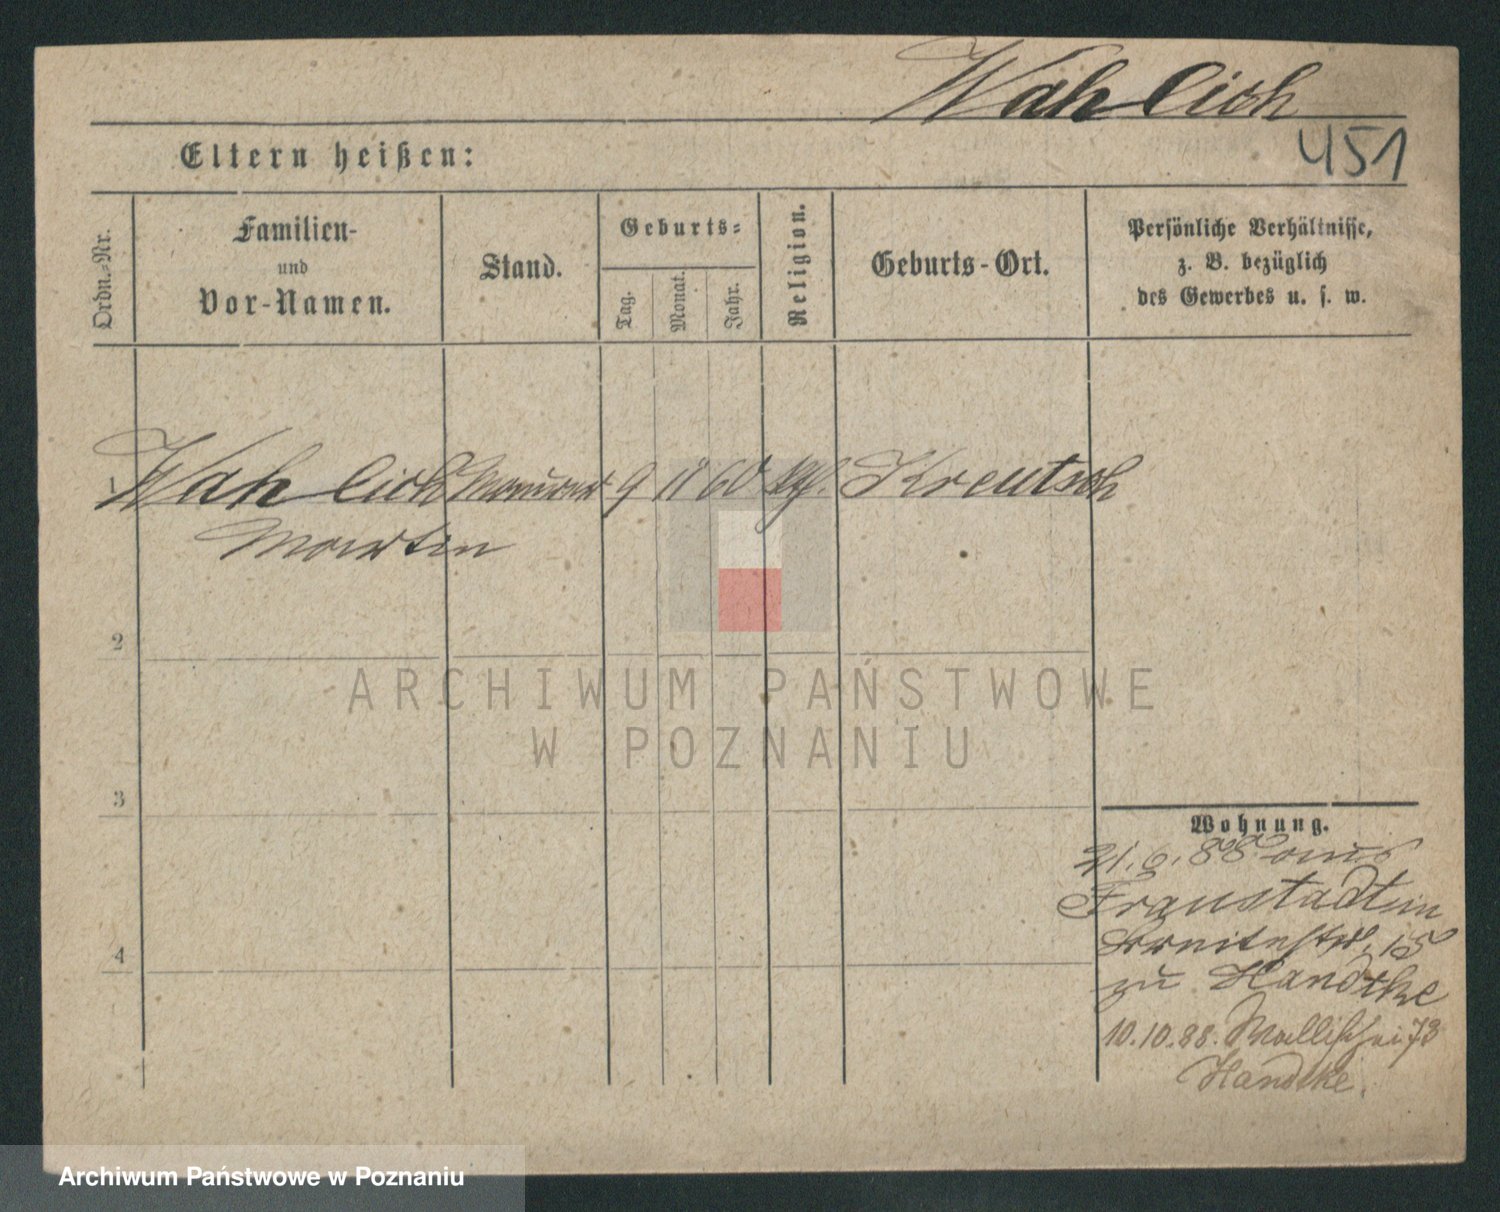 Wahlich
451
Eltern heißen:
Ordn.-Nr.
Familien-
und
Vor-Namen.
Stand.
Geburts-
Tag.
Monat.
Jahr.
Religion.
Geburts-Ort.
Persönliche Verhältnisse,
z. B. bezüglich
des Gewerbes u. s. w.
1 Wahlich Maurer 9 11 60 kth. Kreutsch
Martin
2
3
4
Wohnung.
21.6.88 aus
Fraustadt in
Breitestr. 15
zu Handtke
10.10.88. Wallischei 73
Handtke.
ARCHIWUM PAŃSTWOWE
W POZNANIU
Archiwum Państwowe w Poznaniu